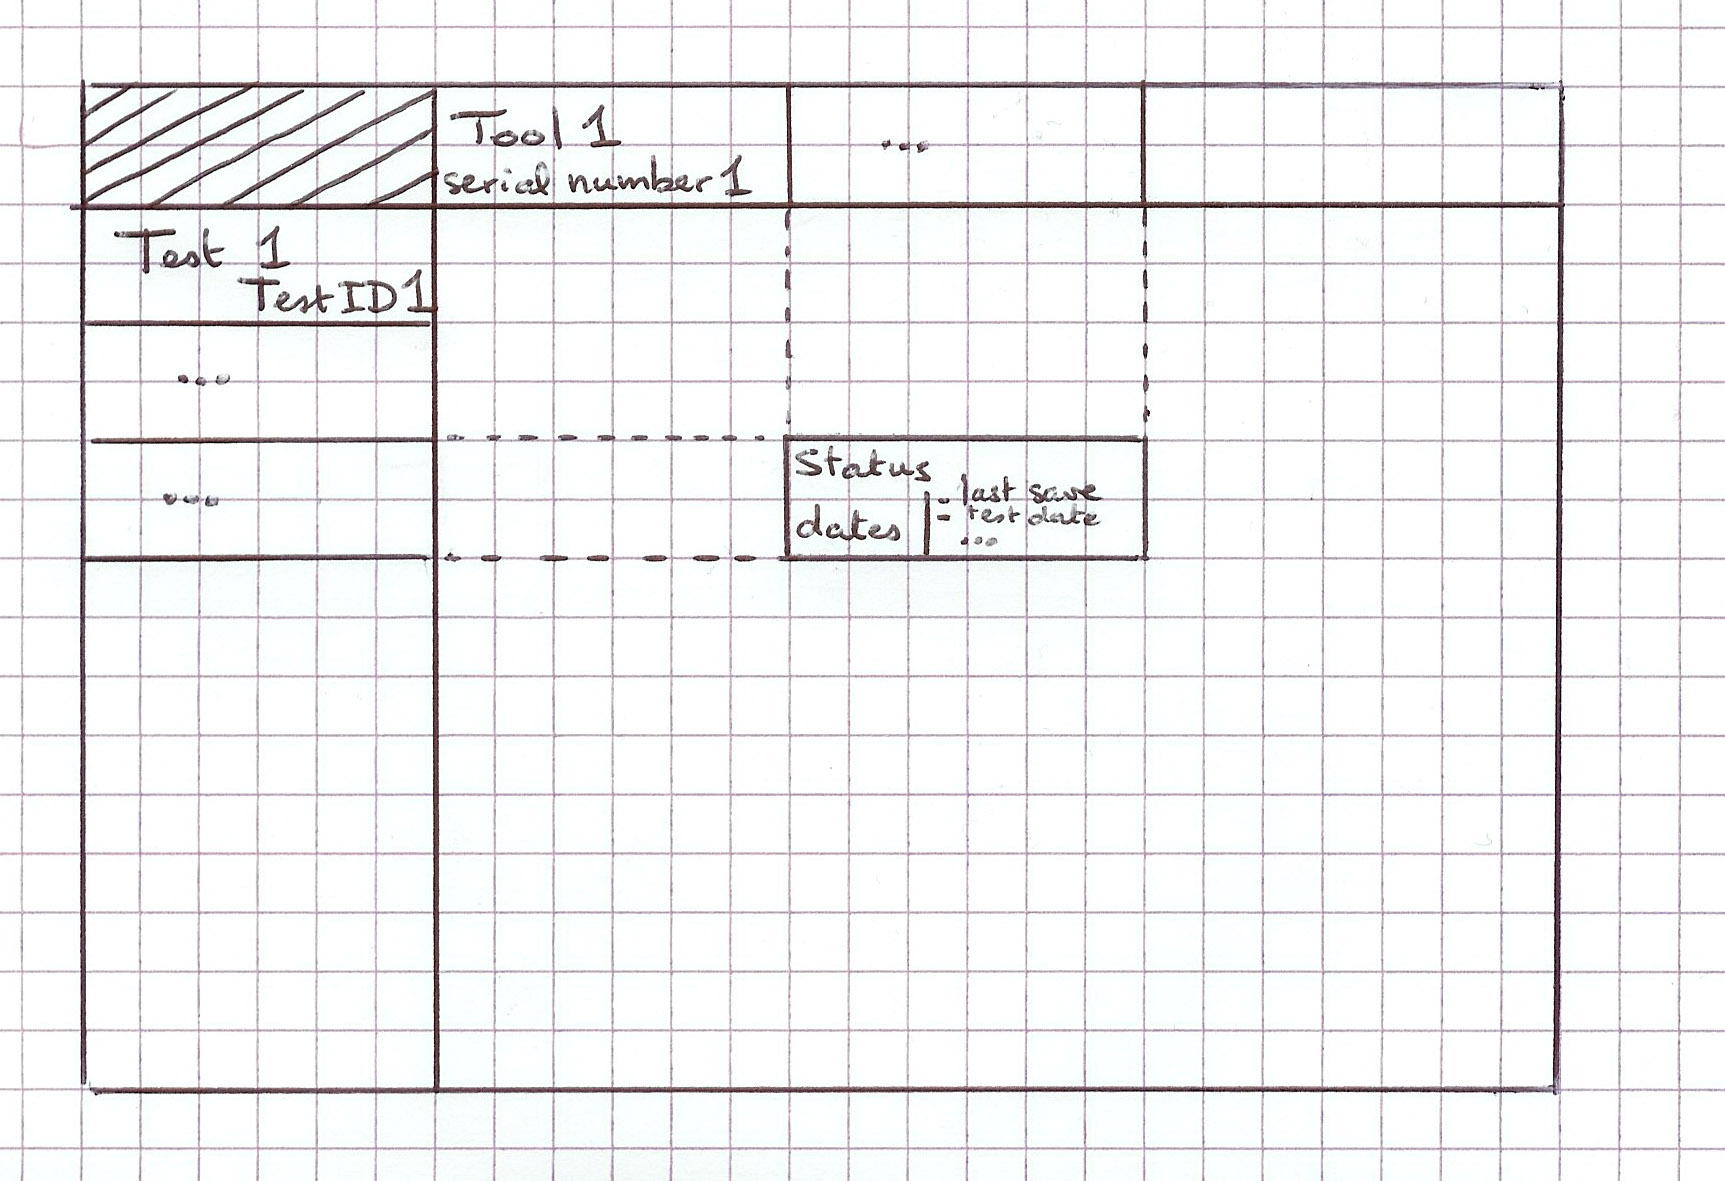 Tool 1
serial number 1
...
Test 1
Test ID 1
...
...
Status
dates
- last save
- test date
...